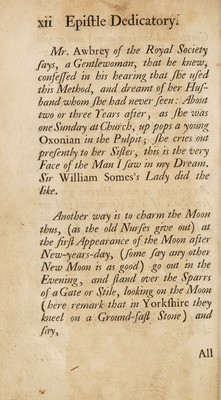 xii Epiſtle Dedicatory.
Mr. Awbrey of the Royal Society
ſays, a Gentlewoman, that he knew,
confeſſed in his hearing that ſhe uſed
this Method, and dreamt of her Huſ-
band whom ſhe had never ſeen: About
two or three Years after, as ſhe was
one Sunday at Church, up pops a young
Oxonian in the Pulpit; ſhe cries out
preſently to her Siſter, this is the very
Face of the Man I ſaw in my Dream.
Sir William Somes's Lady did the
like.
Another way is to charm the Moon
thus, (as the old Nurſes give out) at
the firſt Appearance of the Moon after
New-years-day, (ſome ſay any other
New Moon is as good) go out in the
Evening, and ſtand over the Sparrs
of a Gate or Stile, looking on the Moon
(here remark that in Yorkſhire they
kneel on a Ground-faſt Stone) and
ſay,
All